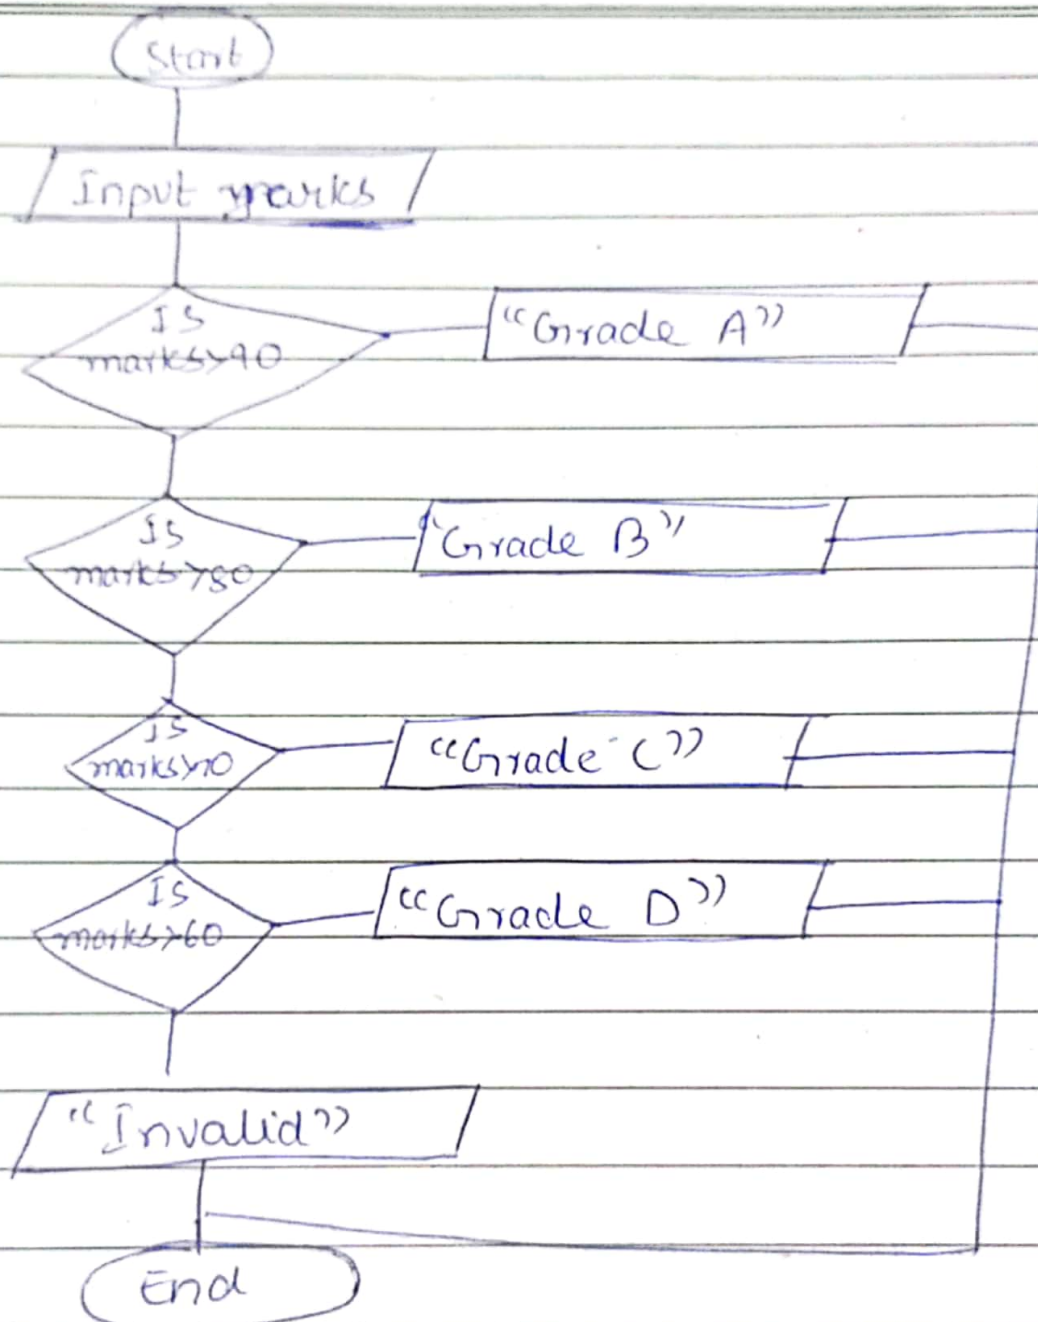 Start
Input marks
Is
marks>90
"Grade A"
Is
marks>80
"Grade B"
Is
marks>70
"Grade C"
Is
marks>60
"Grade D"
"Invalid"
End